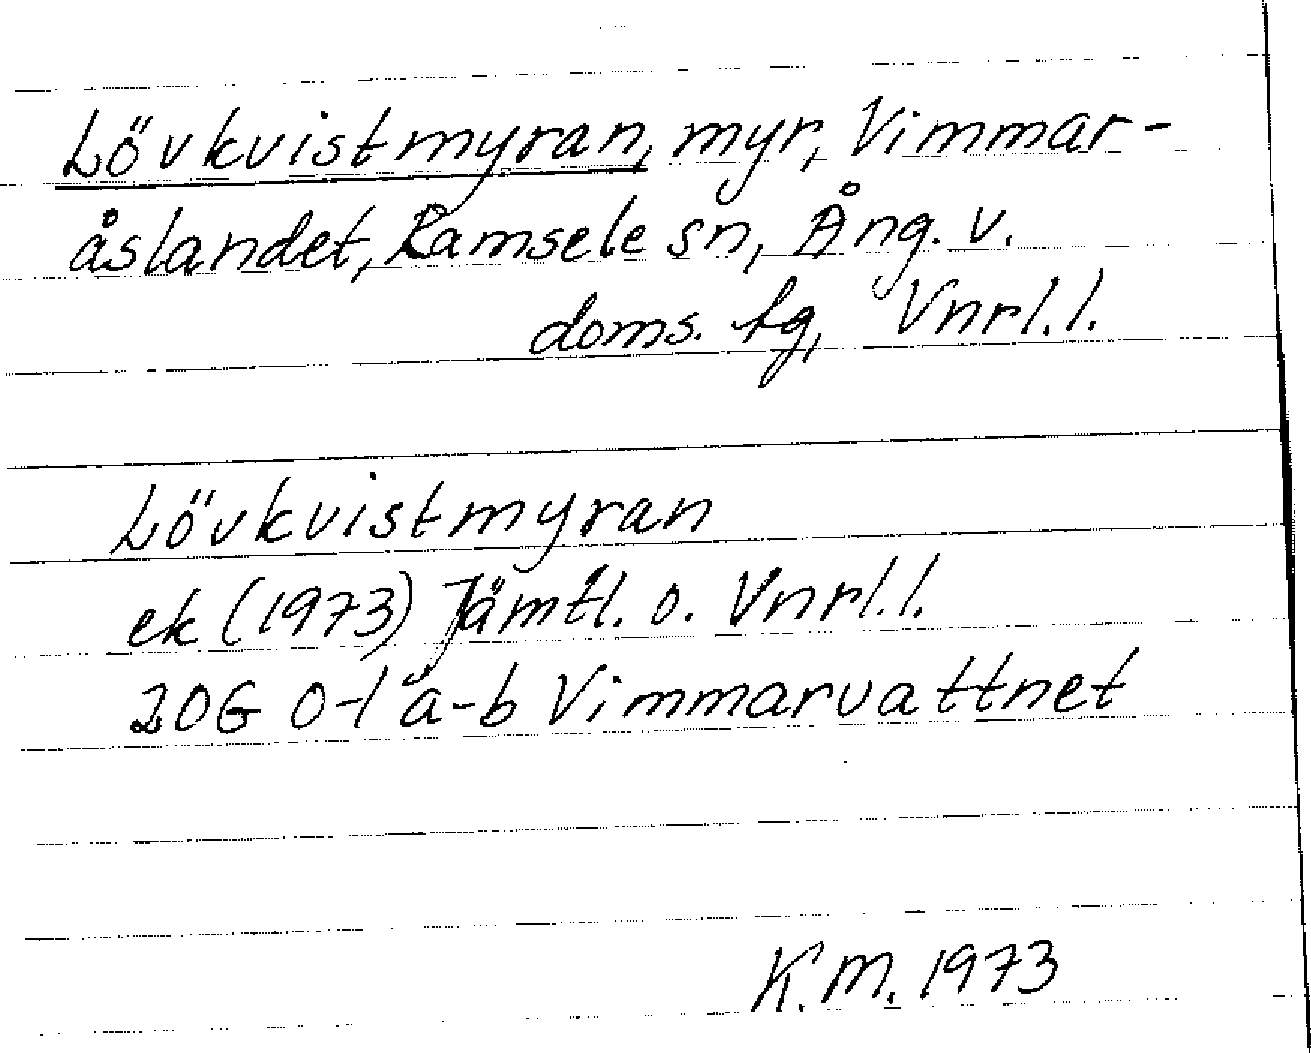 Lövkvistmyran, myr, Vimmar-
åslandet, Ramsele sn, Ång. v.
doms. tg, Vnrl.l.
Lövkvistmyran
ek (1973) Jämtl. o. Vnrl.l.
20G 0-1 a-b Vimmarvattnet
K.M. 1973